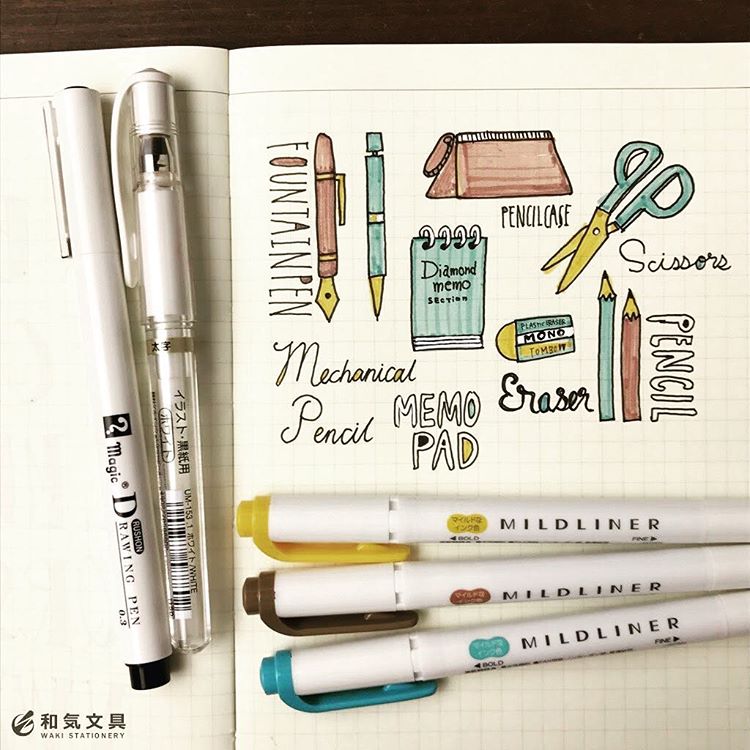 FOUNTAINPEN
PENCILCASE
Scissors
Diamond
memo
SECTION
PLASTIC ERASER
MONO
TOMBOW
PENCIL
Mechanical
Pencil
MEMO
PAD
Eraser
太字
イラスト・黒紙用
ホワイト
UM-153 1 ホワイト/WHITE
Magic®
RUSHON
DRAWING PEN
0.3
マイルドな
インク色
MILDLINER
◀BOLD
FINE▶
マイルドな
インク色
MILDLINER
マイルドな
インク色
MILDLINER
◀BOLD
FINE▶
和気文具
WAKI STATIONERY